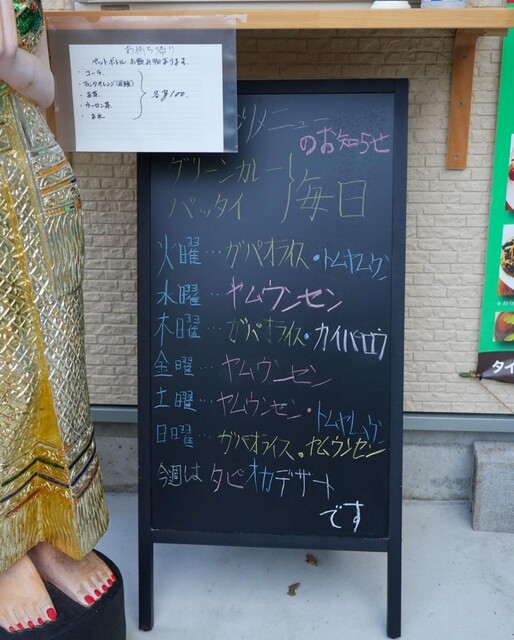 お持ち帰り
ペットボトルお飲み物あります。
・コーラ
・ファンタオレンジ(石垣)
・お茶
・ウーロン茶
・お水
各¥100.
メニュー
のお知らせ
グリーンカレー
パッタイ
毎日
火曜…ガパオライス・トムヤムクン
水曜…ヤムウンセン
木曜…ガパオライス・カイパロウ
金曜…ヤムウンセン
土曜…ヤムウンセン・トムヤムクン
日曜…ガパオライス・ヤムウンセン
今週は タピオカデザート
です
タイ